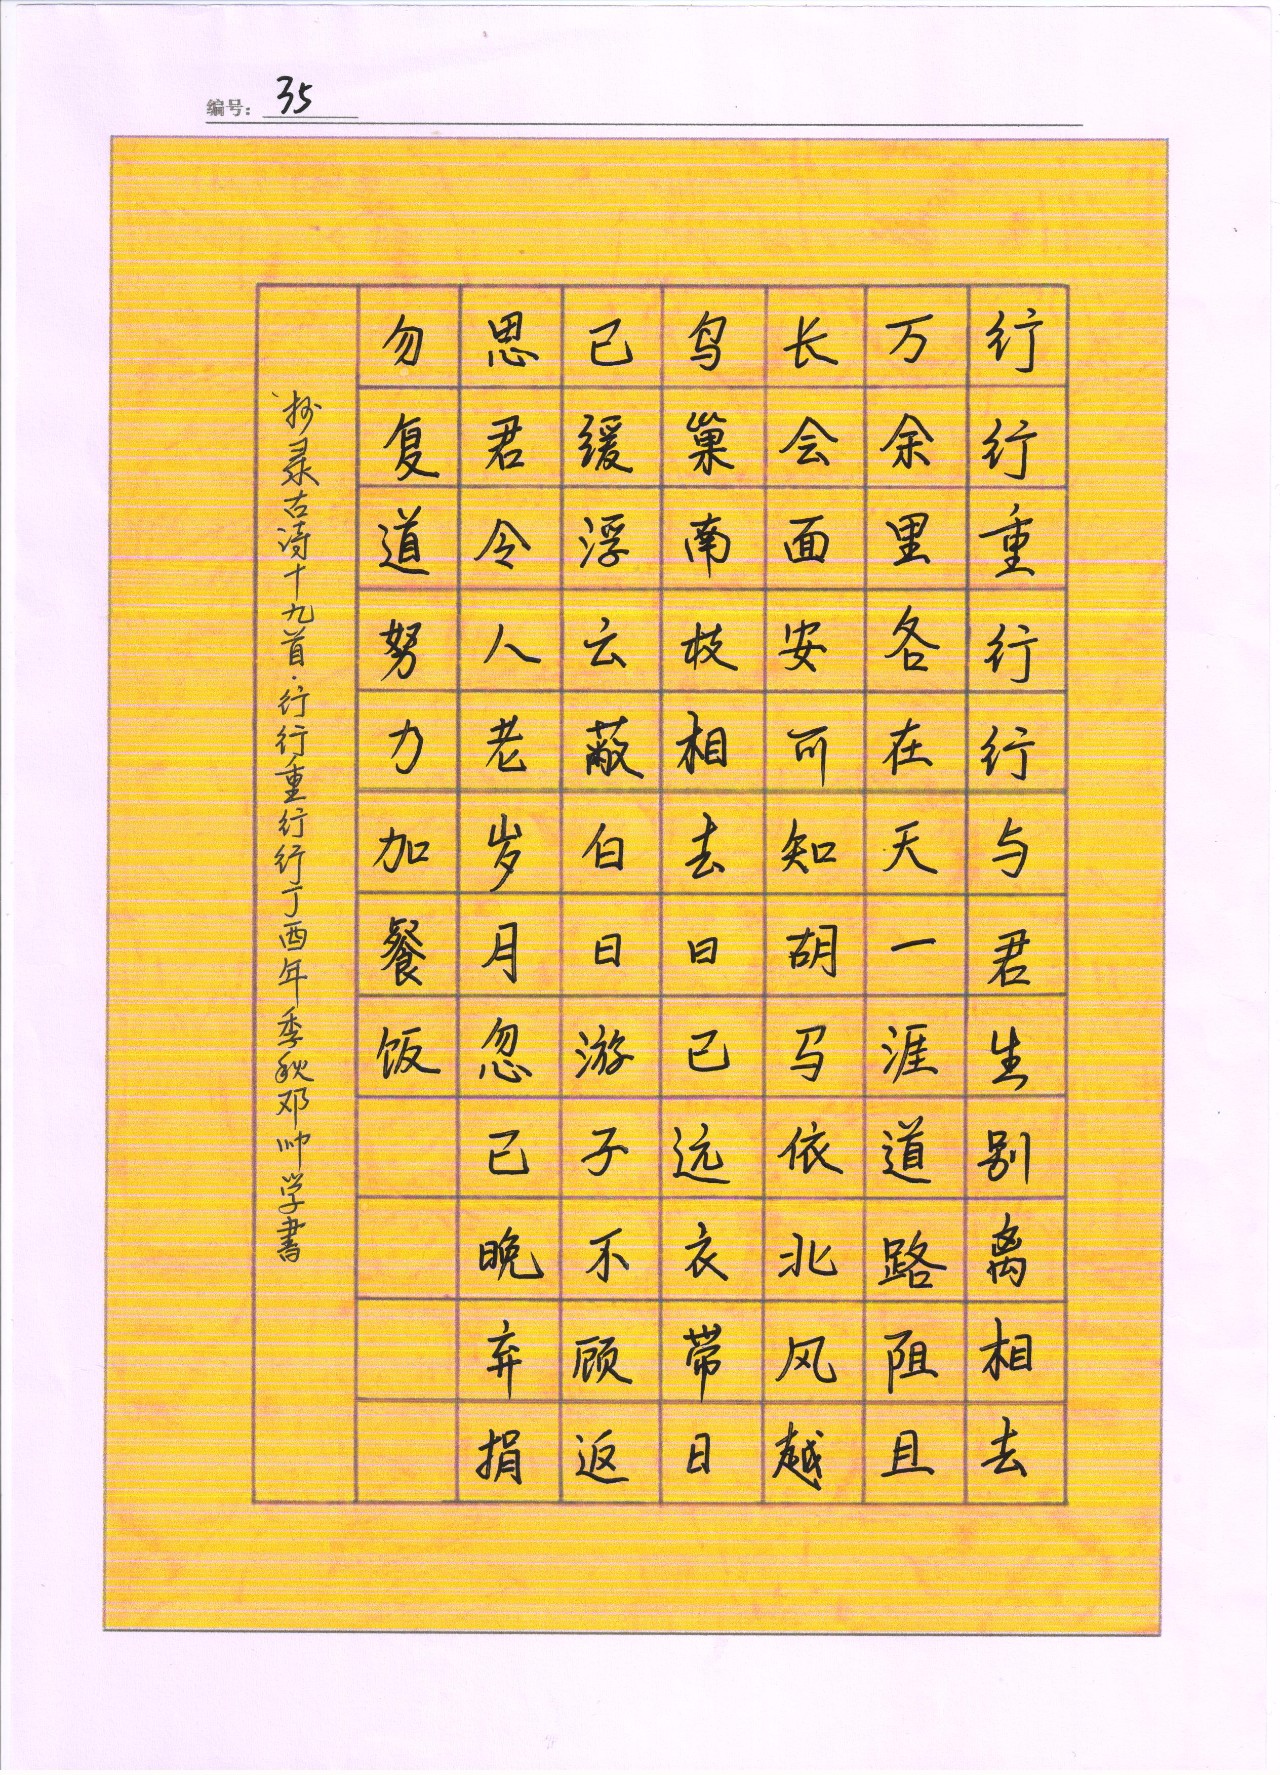 编号: 35
行行重行行与君生别离相去
万余里各在天一涯道路阻且
长会面安可知胡马依北风越
鸟巢南枝相去日已远衣带日
已缓浮云蔽白日游子不顾返
思君令人老岁月忽已晚弃捐
勿复道努力加餐饭
抄录古诗十九首·行行重行行丁酉年季秋邓帅学書